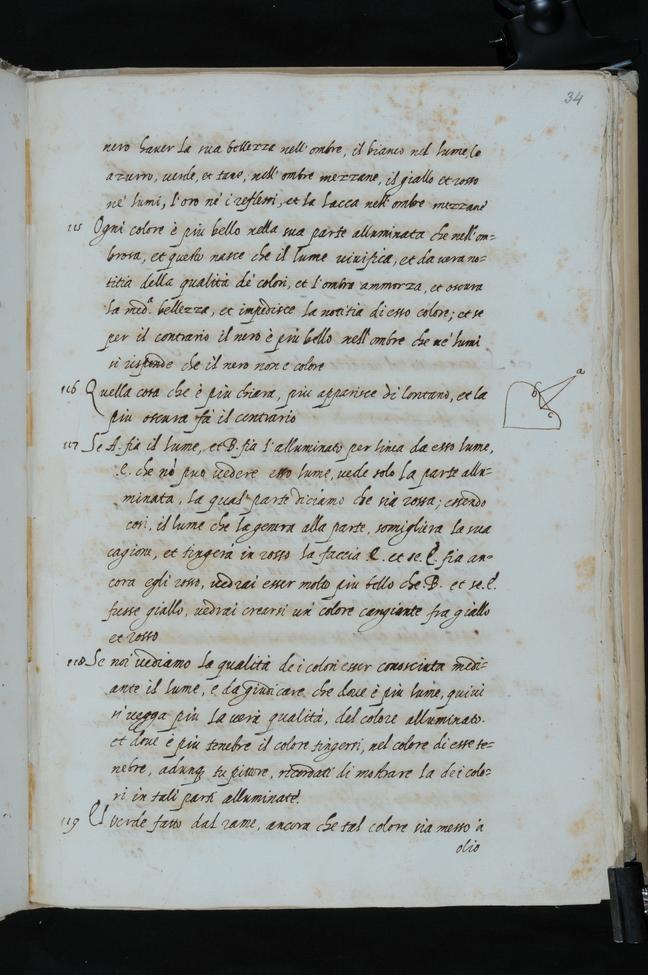 34
nero haver la sua bellezza nell' ombre, il bianco nel lume, lo
azurro, verde, et tane, nell' ombre mezzane, il giallo et rosso
ne' lumi, l'oro ne' i reflessi, et la lacca nell' ombre mezzane
115 Ogni colore è più bello nella sua parte alluminata che nell' om-
brosa, et questo nasce che il lume vivifica, et da vera no-
titia della qualità de' colori, et l'ombra ammorza, et oscura
la med.ª bellezza, et impedisce la notitia di esso colore; et se
per il contrario il nero è più bello nell' ombre che ne' lumi
si risponde che il nero non e colore
116 Quella cosa che è più chiara, più apparisce di lontano, et la
più oscura fà il contrario
a
b
c
117 Se A. fia il lume, et B. fia l'alluminato per linea da esso lume,
.C. che nō può vedere esso lume, vede solo la parte allu-
minata, la qual' parte diciamo che sia rossa; essendo
così, il lume che la genera alla parte, somigliera la sua
cagione, et tingerà in rosso la faccia .C. et se .C. fia an-
cora egli rosso, vedrai esser molto più bello che .B. et se .C.
fusse giallo, vedrai crearsi un' colore cangiante fra giallo
et rosso
118 Se noi vediamo la qualità de i colori esser conosciuta medi-
ante il lume, e da giudicare che dove è più lume, quivi
si vegga più la verà qualità, del colore alluminato.
et dove è più tenebre il colore tingersi, nel colore di esse te-
nebre, adunq; tu pittore, ricordati di mostrare la de i colo-
ri in tali parti alluminate.
119 Il verde fatto dal rame, ancora che tal colore sia messo à
olio